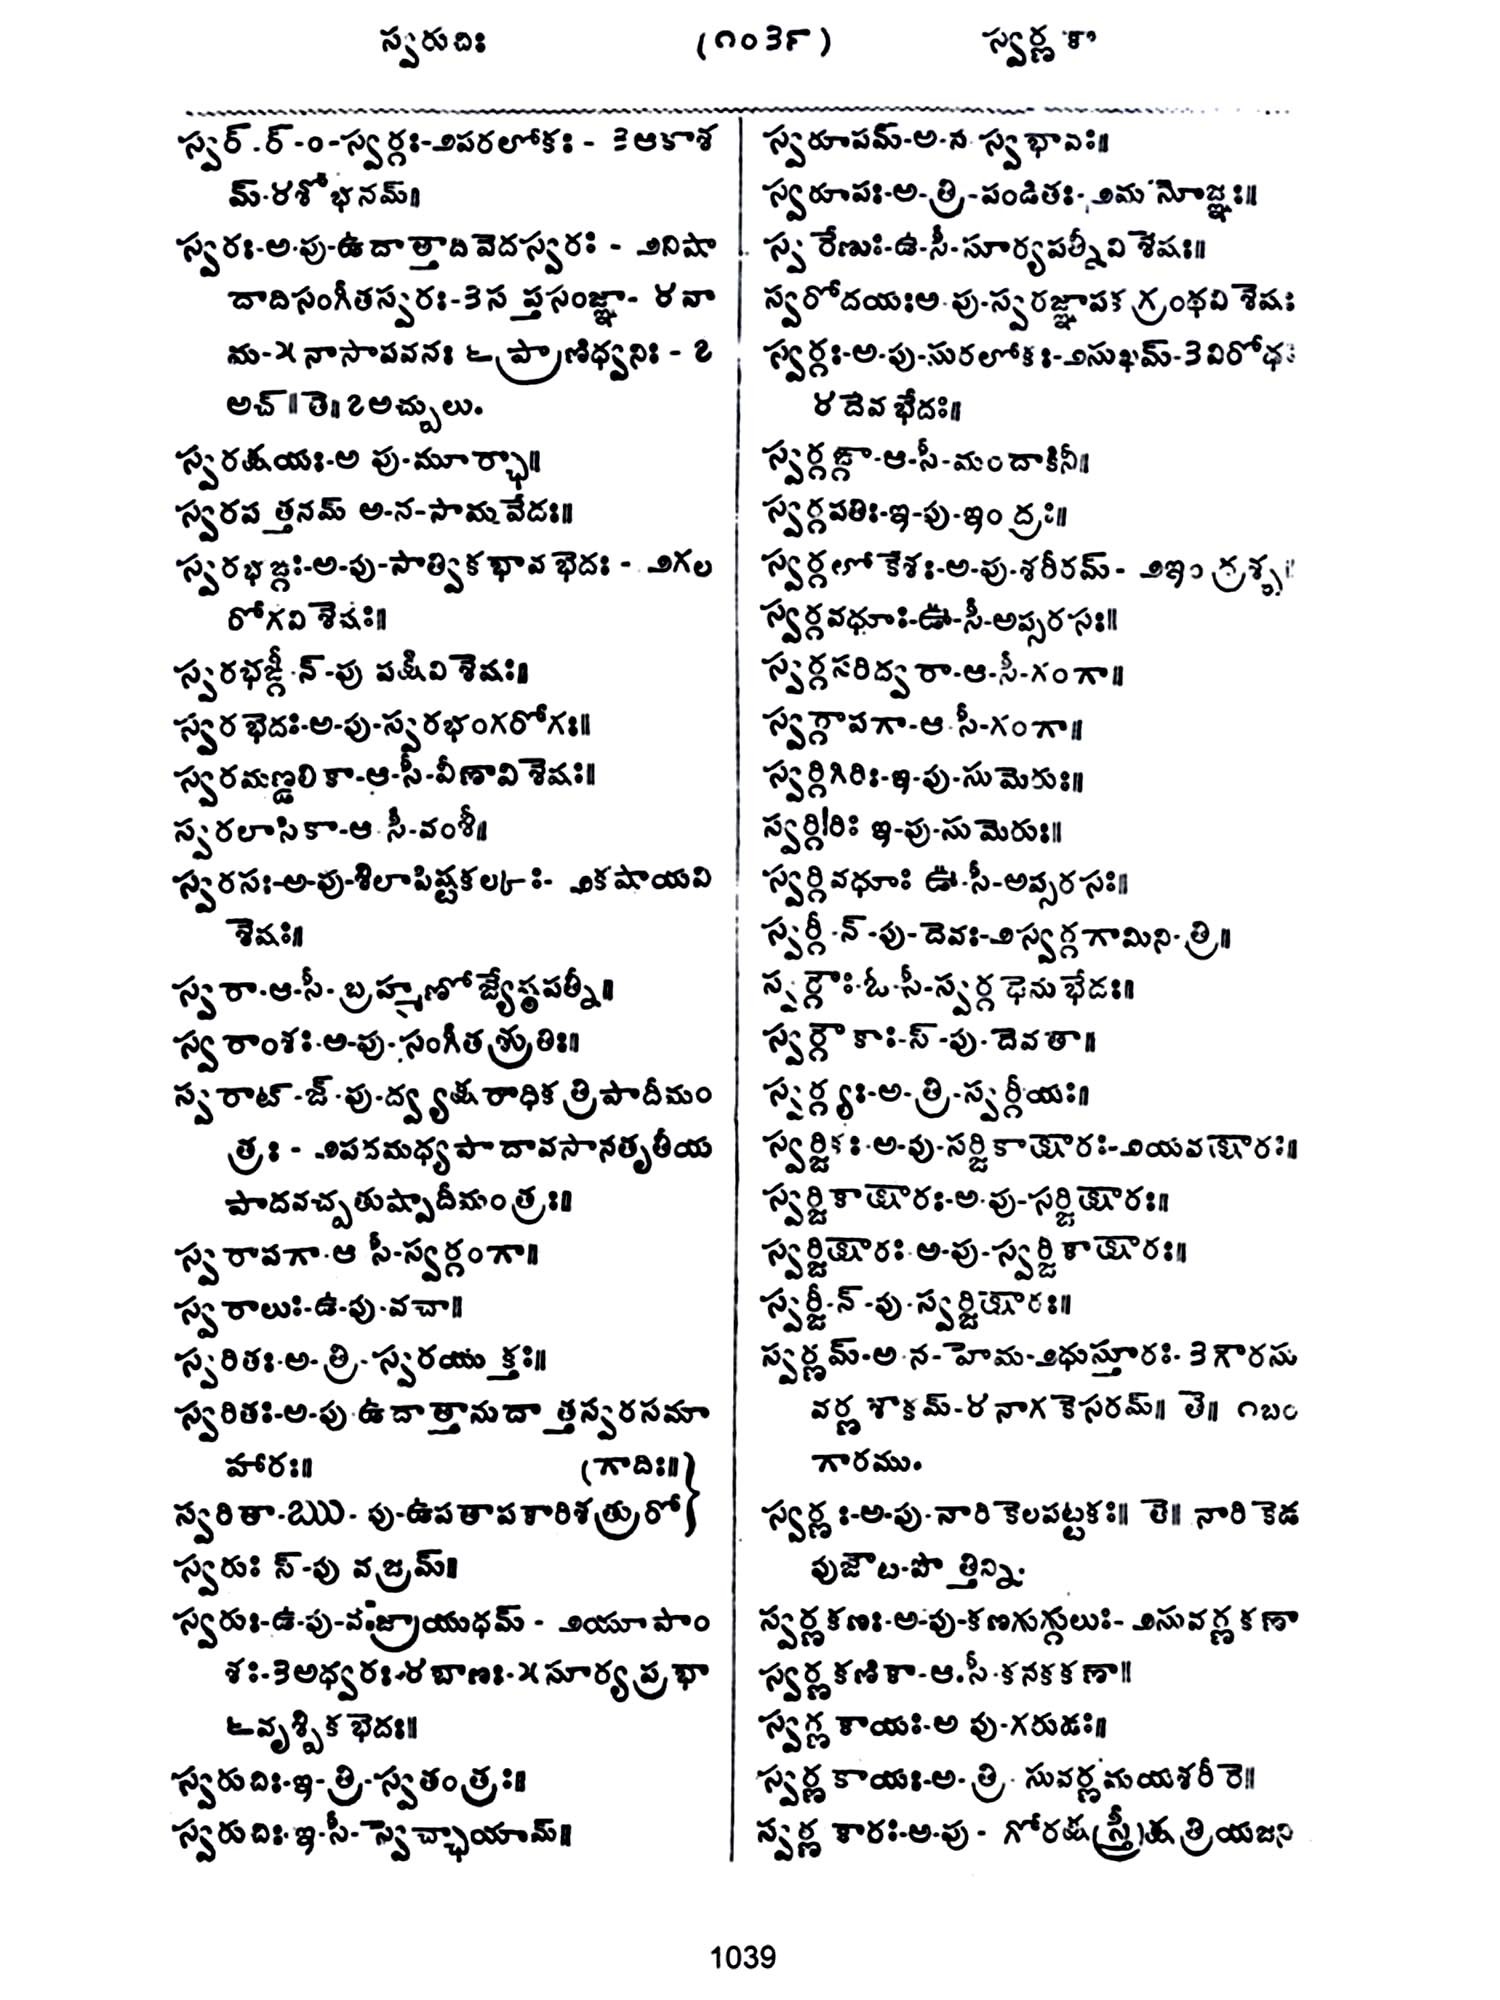 స్వరుచిః (౧౦౩౯) స్వర్ణకా
స్వర్-ర్-ం-స్వర్గః-౨పరలోకః - ౩ఆకాశ
మ్-౪శోభనమ్॥
స్వరః-అ-పు-ఉదాత్తాదివెదస్వరః - ౨నిషా
దాదిసంగీతస్వరః-౩సప్తసంజ్ఞా- ౪నా
మ-౫నాసాపవనః ౬ప్రాణిధ్వనిః - ౭
అచ్॥తె॥౭అచ్చులు.
స్వరక్షయః-అ పు-మూర్ఛా॥
స్వరపత్తనమ్ అ-న-సామవేదః॥
స్వరభఙ్గః-అ-పు-సాత్వికభావభెదః - ౨గల
రోగవిశెషః॥
స్వరభఙ్గీ-న్-పు పక్షివిశెషః॥
స్వరభెదః-అ-పు-స్వరభంగరోగః॥
స్వరమణ్డలికా-ఆ-సీ-వీణావిశెషః॥
స్వరలాసికా-ఆ-సీ-వంశీ॥
స్వరసః-అ-పు-శిలాపిష్టకల్కః- ౨కషాయవి
శెషః॥
స్వరా-ఆ-సీ-బ్రహ్మణోజ్యేష్ఠపత్నీ॥
స్వరాంశః-అ-పు-సంగీతశ్రుతిః॥
స్వరాట్-జ్-పు-ద్వ్యక్షరాధికత్రిపాదీమం
త్రః - ౨పనమధ్యపాదావసానతృతీయ
పాదవచ్చతుష్పాదీమంత్రః॥
స్వరాపగా-ఆ సీ-స్వర్గంగా॥
స్వరాలుః-ఉ-పు-వచా॥
స్వరితః-అ-త్రి-స్వరయుక్తః॥
స్వరితః-అ-పు-ఉదాత్తానుదాత్తస్వరసమా
హారః॥ (గాదిః॥}
స్వరితా-ఋ-పు-ఉపతాపకారిశత్రురో}
స్వరుః స్-పు వజ్రమ్॥
స్వరుః-ఉ-పు-వజ్రాయుధమ్ - ౨యూపాం
శః-౩అధ్వరః-౪బాణః-౫సూర్యప్రభా
౬వృశ్చికభెదః॥
స్వరుచిః-ఇ-త్రి-స్వతంత్రః॥
స్వరుచిః-ఇ-సీ-స్వెచ్ఛాయామ్॥
స్వరూపమ్-అ-న-స్వభావః॥
స్వరూపః-అ-త్రి-పండితః-౨మనోజ్ఞః॥
స్వరేణుః-ఉ-సీ-సూర్యపత్నీవిశెషః॥
స్వరోదయఃఅ-పు-స్వరజ్ఞాపకగ్రంథవిశెషః
స్వర్గః-అ-పు-సురలోకః-౨సుఖమ్-౩విరోధః
౪దేవభేదః॥
స్వర్గఙ్గా-ఆ-సీ-మందాకినీ॥
స్వర్గపతిః-ఇ-పు-ఇంద్రః॥
స్వర్గలోకేశః-అ-పు-శరీరమ్- ౨ఇంద్రశ్చ॥
స్వర్గవధూః-ఊ-సీ-అప్సరసః॥
స్వర్గసరిద్వరా-ఆ-సీ-గంగా॥
స్వర్గాపగా-ఆ-సీ-గంగా॥
స్వర్గిగిరిః-ఇ-పు-సుమెరుః॥
స్వర్గిరిః ఇ-పు-సుమెరుః॥
స్వర్గివధూః ఊ-సీ-అప్సరసః॥
స్వర్గీ-న్-పు-దెవః-౨స్వర్గగామిని-త్రి॥
స్వర్గౌః-ఓ-సీ-స్వర్గధెనుభేదః॥
స్వర్గౌకాః-స్-పు-దెవతా॥
స్వర్గ్యః-అ-త్రి-స్వర్గీయః॥
స్వర్జికః-అ-పు-సర్జికాక్షారః-౨యవక్షారః॥
స్వర్జికాక్షారః-అ-పు-సర్జిక్షారః॥
స్వర్జిక్షారః-అ-పు-స్వర్జికాక్షారః॥
స్వర్జీ-న్-పు-స్వర్జిక్షారః॥
స్వర్ణమ్-అ-న-హెమ-౨ధుస్తూరః- ౩గౌరసు
వర్ణశాకమ్-౪నాగకెసరమ్॥ తె॥ ౧బం
గారము.
స్వర్ణః-అ-పు-నారికెలపట్టకః॥ తె॥ నారికెడ
పుజౌట-పొత్తిన్ని.
స్వర్ణకణః-అ-పు-కణగుగ్గులుః- ౨సువర్ణకణా
స్వర్ణకణికా-ఆ-సీ-కనకకణా॥
స్వర్ణకాయః-అ పు-గరుడః॥
స్వర్ణకాయః-అ-త్రి-సువర్ణమయశరీరె॥
స్వర్ణకారః-అ-పు- గోరక్షస్త్రీక్షత్రియజని
1039